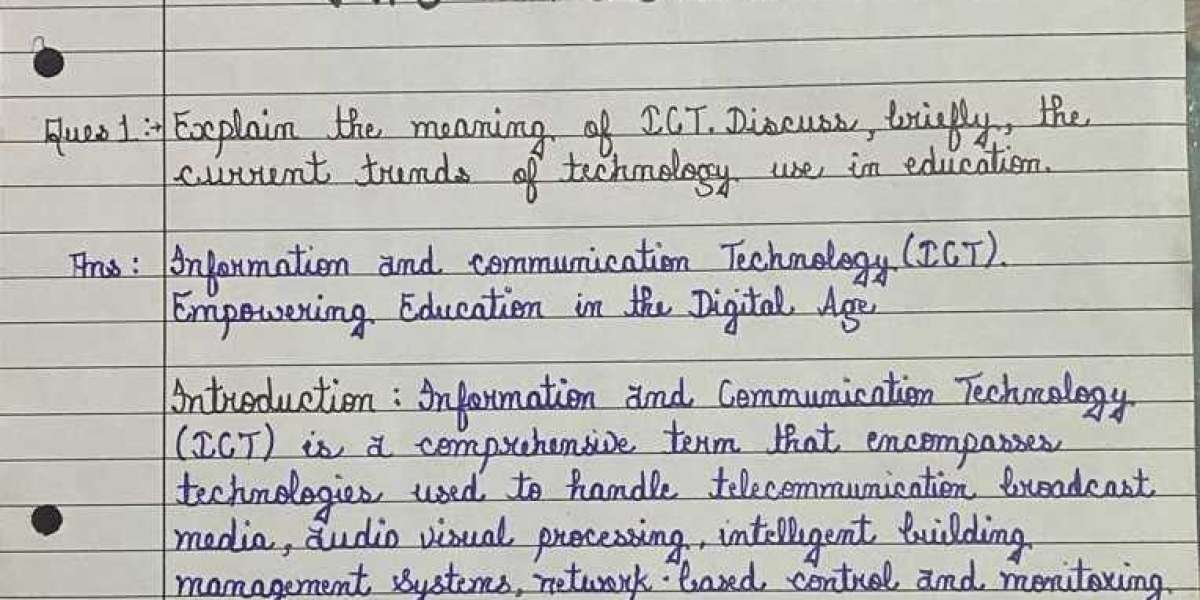 Ques 1:→ Explain the meaning of ICT. Discuss, briefly, the
current trends of technology use in education.
Ans: Information and communication Technology (ICT).
Empowering Education in the Digital Age
Introduction: Information and Communication Technology
(ICT) is a comprehensive term that encompasses
technologies used to handle telecommunication broadcast
media, audio visual processing, intelligent building
management systems, network-based control and monitoring